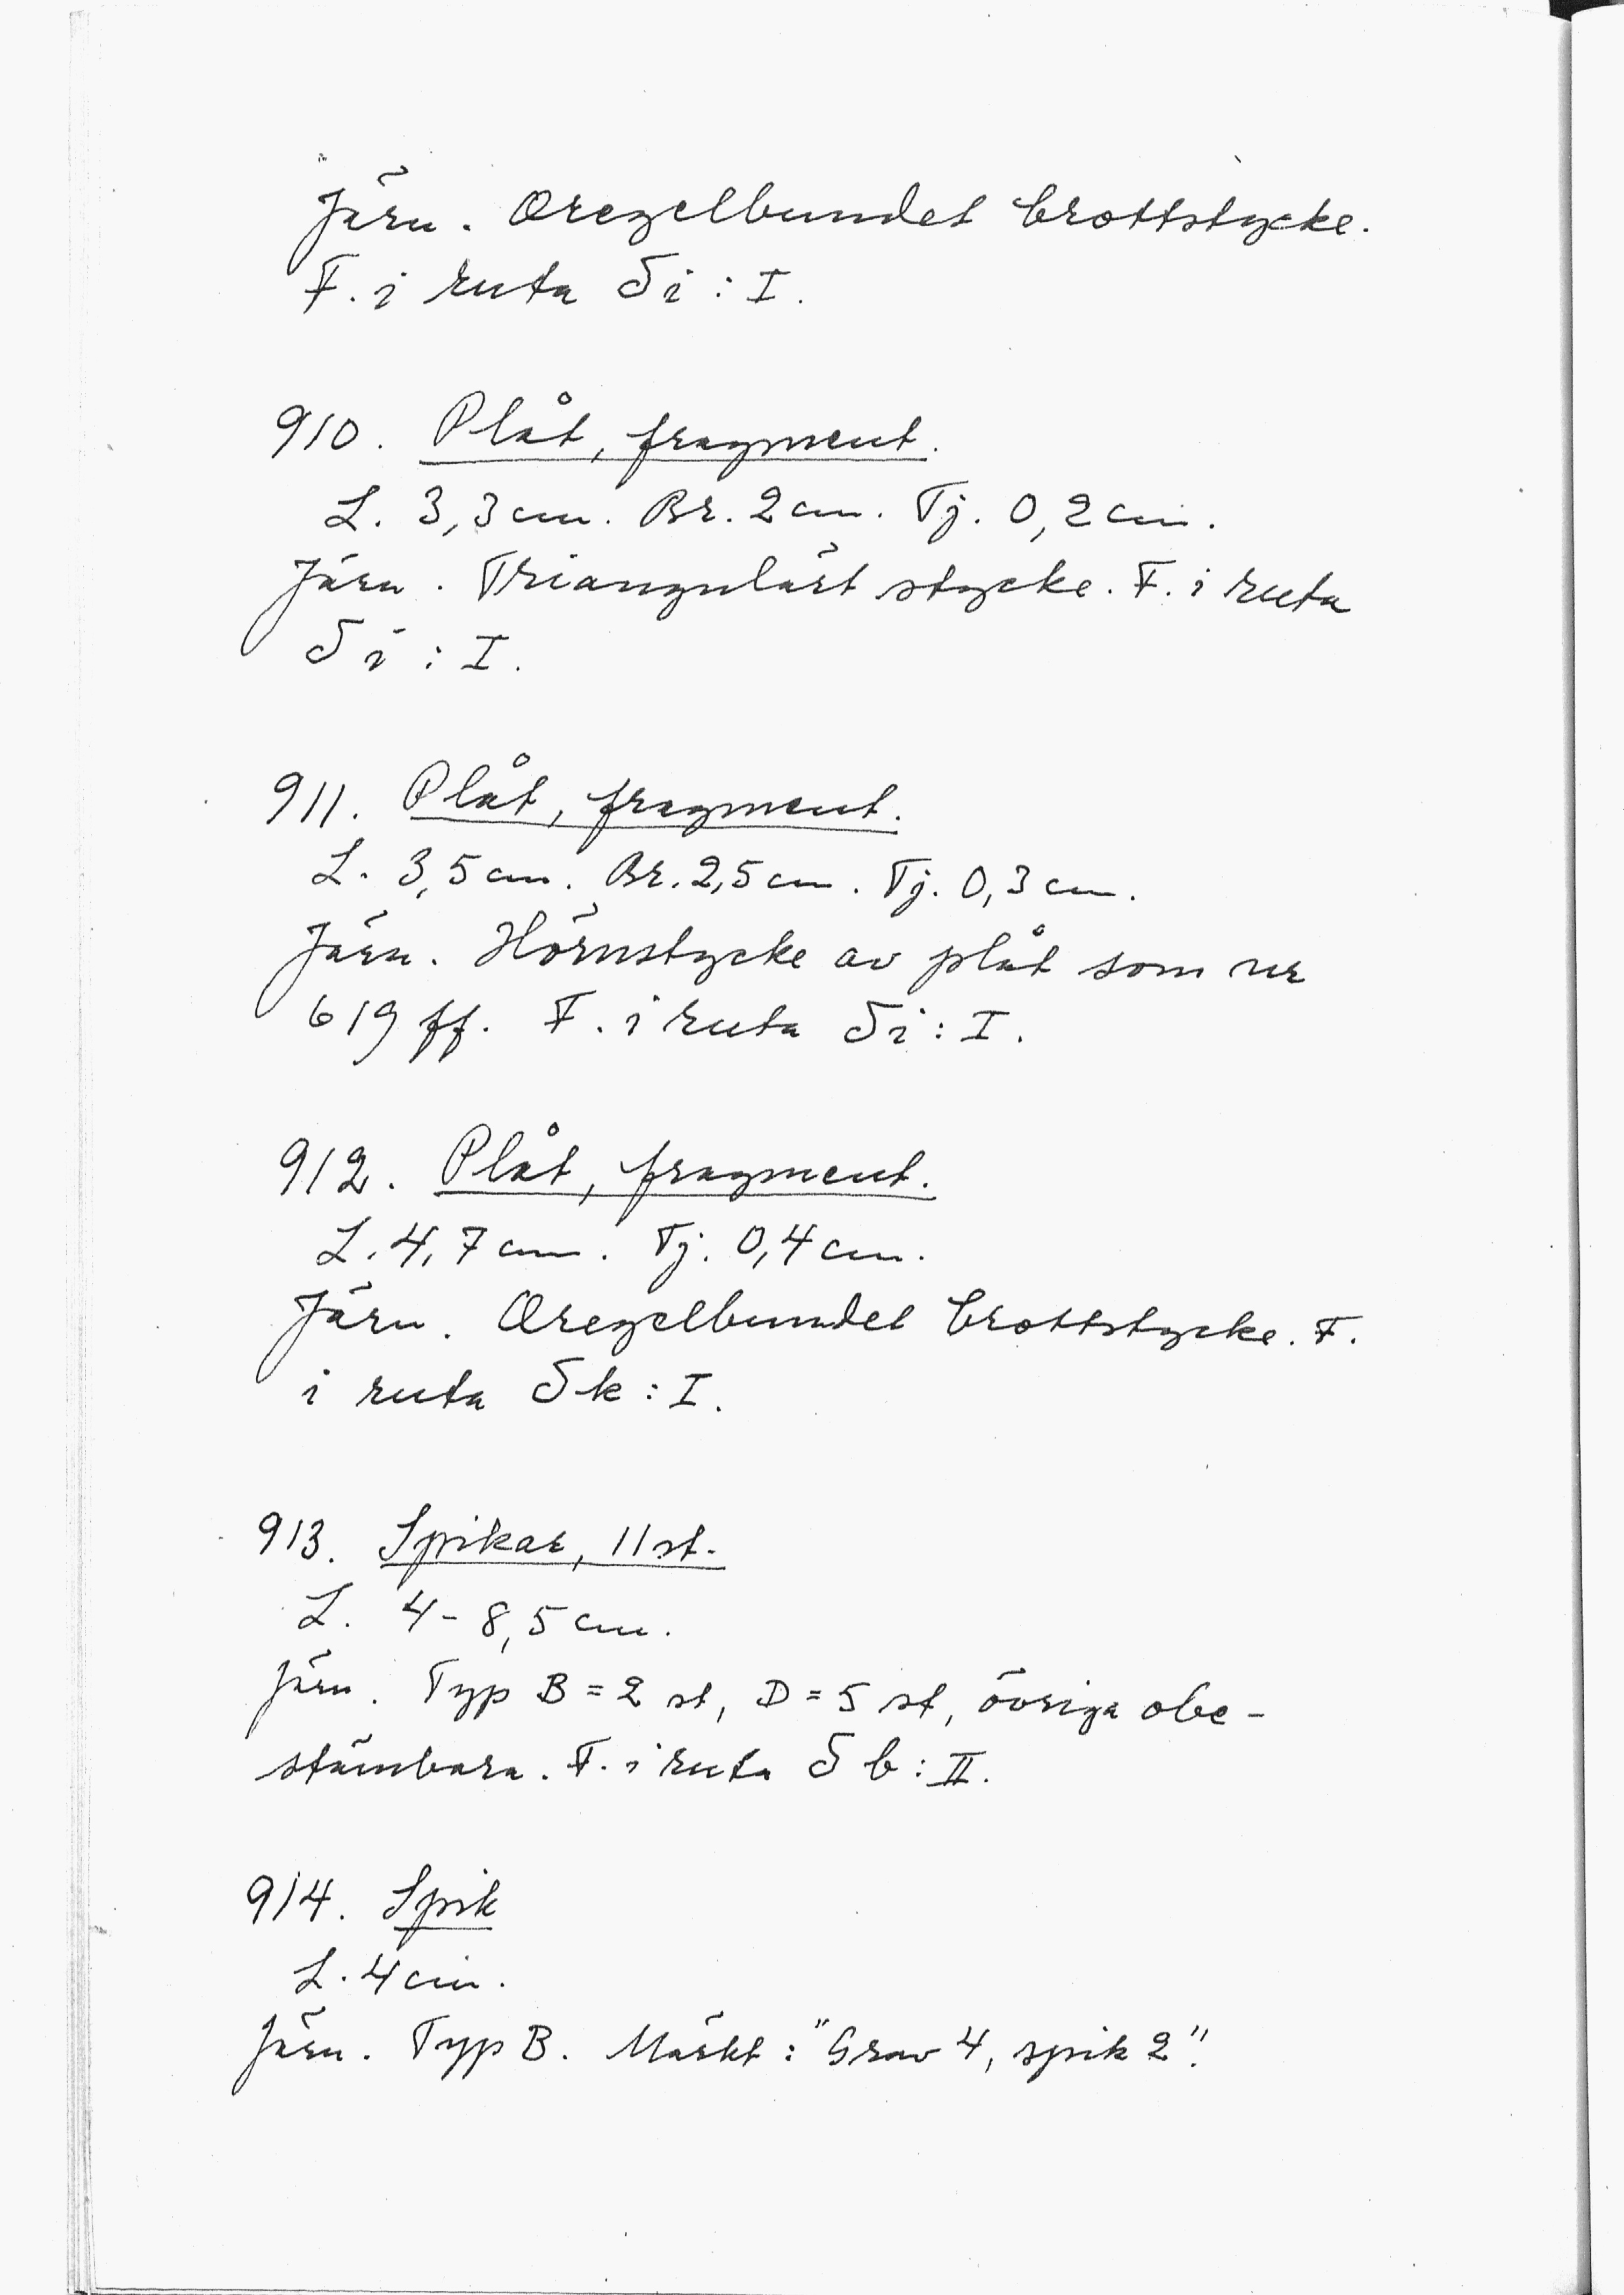 Järn. Oregelbundet brottstycke.
F. i ruta Si : I.
910. Plåt, fragment.
L. 3,3 cm. Br. 2 cm. Tj. 0,2 cm.
Järn. Triangulärt stycke. F. i ruta
Si : I.
911. Plåt, fragment.
L. 3,5 cm. Br. 2,5 cm. Tj. 0,3 cm.
Järn. Hörnstycke av plåt som nr
619 ff. F. i ruta Si : I.
912. Plåt, fragment.
L. 4,7 cm. Tj. 0,4 cm.
Järn. Oregelbundet brottstycke. F.
i ruta Sk : I.
913. Spikar, 11 st.
L. 4-8,5 cm.
Järn. Typ B = 2 st, D = 5 st, övriga obe-
stämbara. F. i ruta Sb : II.
914. Spik
L. 4 cm.
Järn. Typ B. Märkt : "Grav 4, spik 2".